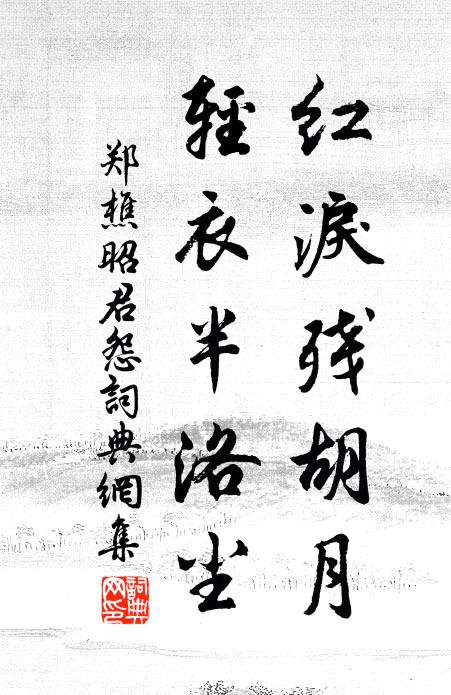 红淚残胡月
輕衣半洛尘
郑樵昭君怨詞典網集
詞典网印